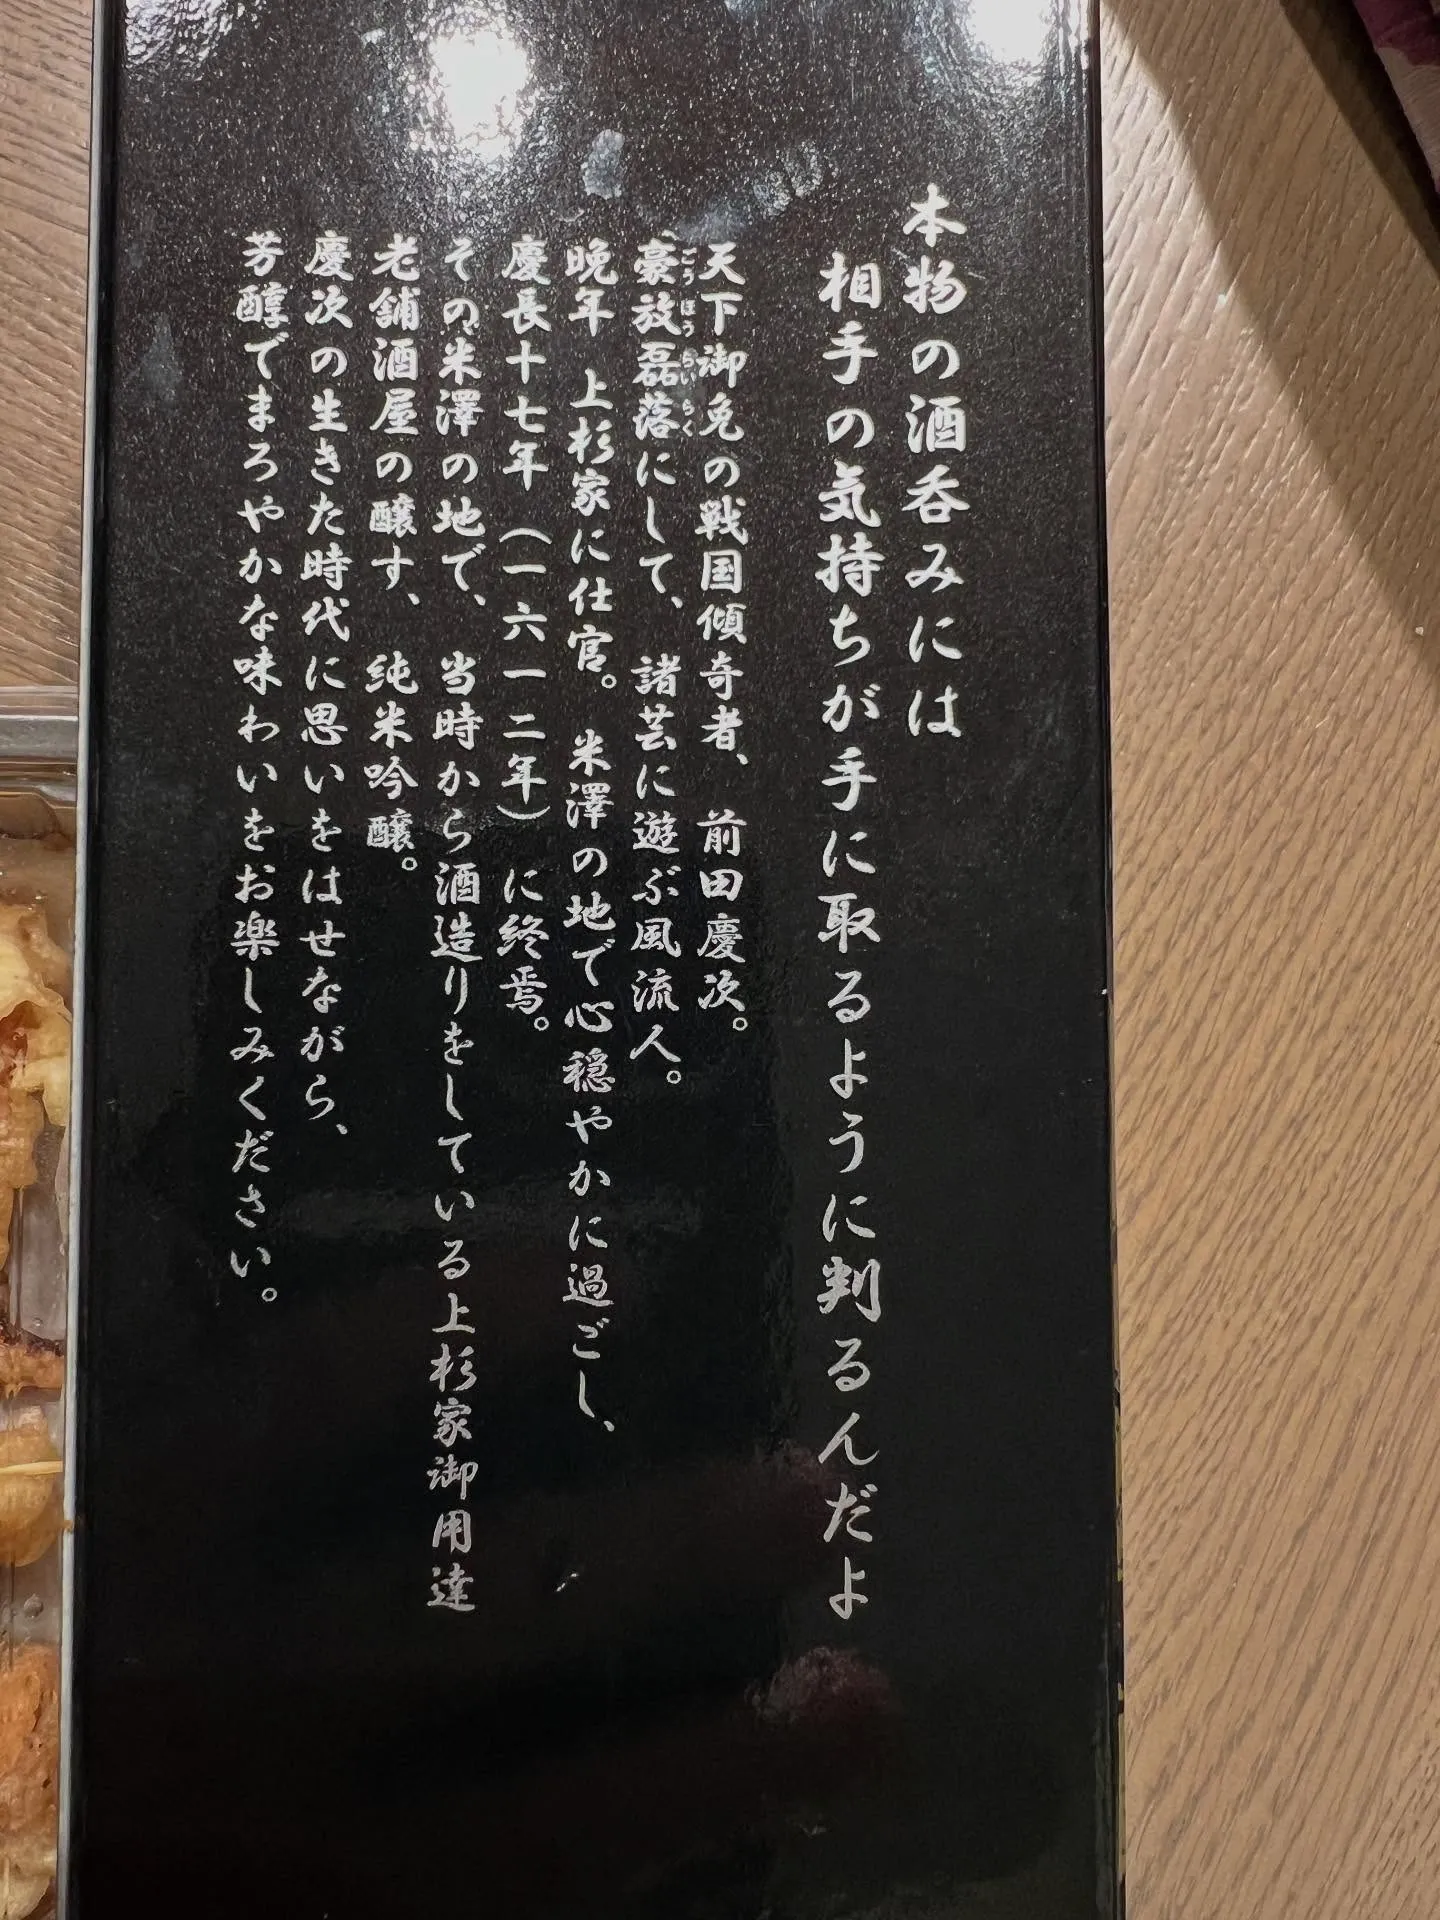 本物の酒呑みには
相手の気持ちが手に取るように判るんだよ
天下御免の戦国傾奇者、前田慶次。
ごうほうらいらく
豪放磊落にして、諸芸に遊ぶ風流人。
晩年 上杉家に仕官。米澤の地で心穏やかに過ごし、
慶長十七年（一六一二年）に終焉。
その米澤の地で、当時から酒造りをしている上杉家御用達
老舗酒屋の醸す、純米吟醸。
慶次の生きた時代に思いをはせながら、
芳醇でまろやかな味わいをお楽しみください。